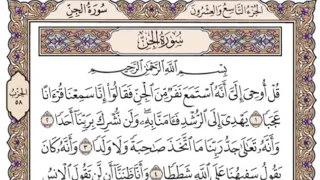 سُورَةُ الجِنِّ
الجُزْءُ التَّاسِعُ وَالعِشْرُونَ
سُورَةُ الجِنِّ
بِسْمِ اللَّهِ الرَّحْمَٰنِ الرَّحِيمِ
قُلْ أُوحِيَ إِلَيَّ أَنَّهُ اسْتَمَعَ نَفَرٌ مِّنَ الْجِنِّ فَقَالُوا إِنَّا سَمِعْنَا قُرْآنًا
عَجَبًا ١ يَهْدِي إِلَى الرُّشْدِ فَآمَنَّا بِهِ وَلَن نُّشْرِكَ بِرَبِّنَا أَحَدًا ٢
وَأَنَّهُ تَعَالَىٰ جَدُّ رَبِّنَا مَا اتَّخَذَ صَاحِبَةً وَلَا وَلَدًا ٣ وَأَنَّهُ كَانَ
يَقُولُ سَفِيهُنَا عَلَى اللَّهِ شَطَطًا ٤ وَأَنَّا ظَنَنَّا أَن لَّن تَقُولَ الْإِنسُ
الحِزْب
٥٨